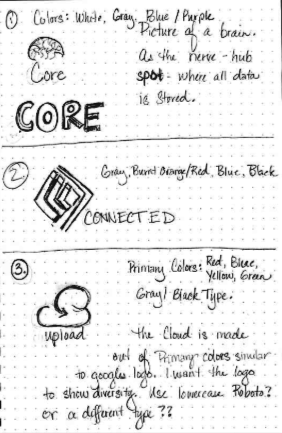 ① Colors: White, Gray, Blue / Purple
Picture of a brain.
As the nerve-hub
spot - where all data
is stored.
Core
CORE
②
Gray, Burnt Orange/Red, Blue, Black
CONNECTED
③.
Primary Colors: Red, Blue,
Yellow, Green
Gray/Black Type.
upload
The Cloud is made
out of Primary colors similar
to googles logo. I want the logo
to show diversity. Use lowercase Roboto?
or a different type??